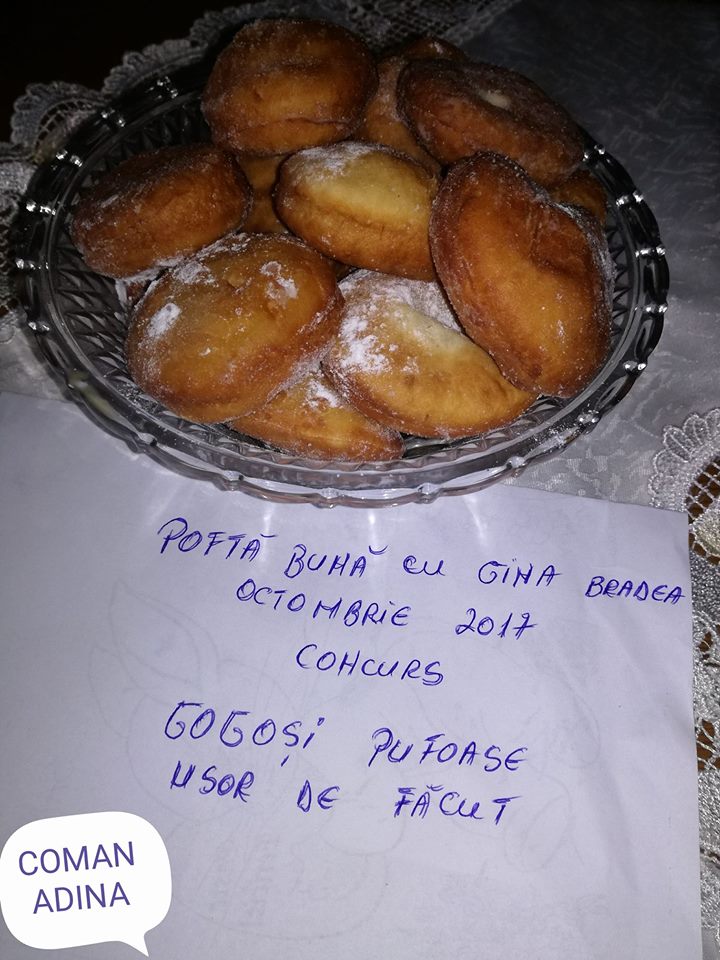 POFTĂ BUNĂ CU GINA BRADEA
OCTOMBRIE 2017
CONCURS
GOGOȘI PUFOASE
USOR DE FĂCUT
COMAN
ADINA